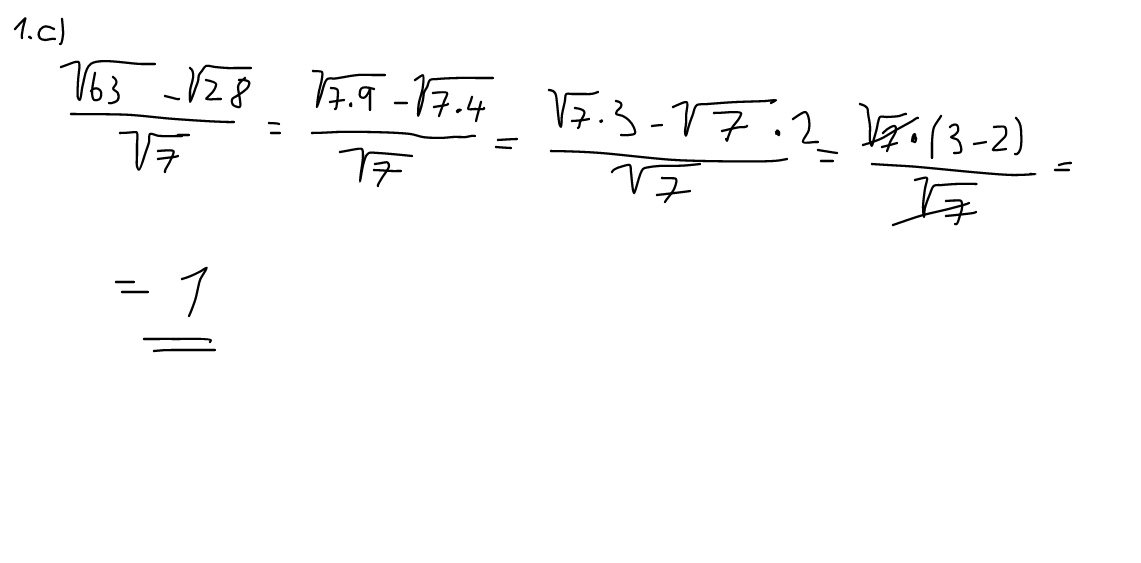 1.c)
(√63 - √28)/√7 = (√7.9 - √7.4)/√7 = (√7.3 - √7.2)/√7 = (√7.(3-2))/√7 =
= 1